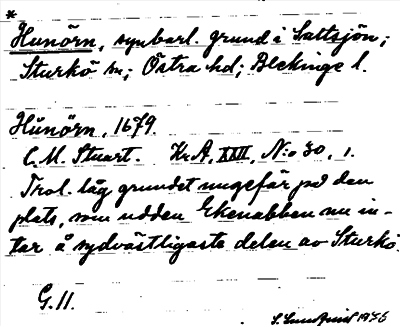 *
Hunörn, synbarl. grund i Saltsjön;
Sturkö sn; Östra hd; Blekinge l.
Hünörn, 1679.
C. M. Stuart. Kr.A, XXII, N:o 30, 1.
Trol. låg grundet ungefär på den
plats, som udden Ekenabben nu in-
tar å sydvästligaste delen av Sturkö.
G. 11.
1946